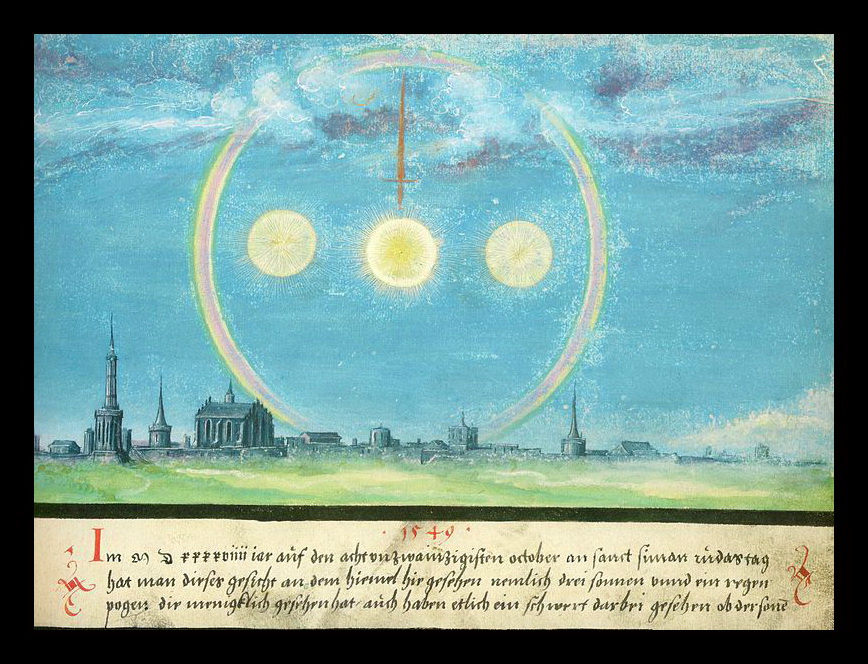 · 1549 ·
Im M D xxxxviiii iar auf den achtvnzwainzigisten october an sanct siman iudas tag
hat man dieses gesicht an dem hiemel hir gesehen nemlich drei sonnen vnnd ein regen
pogen die menigklich gesehen hat auch haben etlich ein schwert darbei gesehen ob der sone